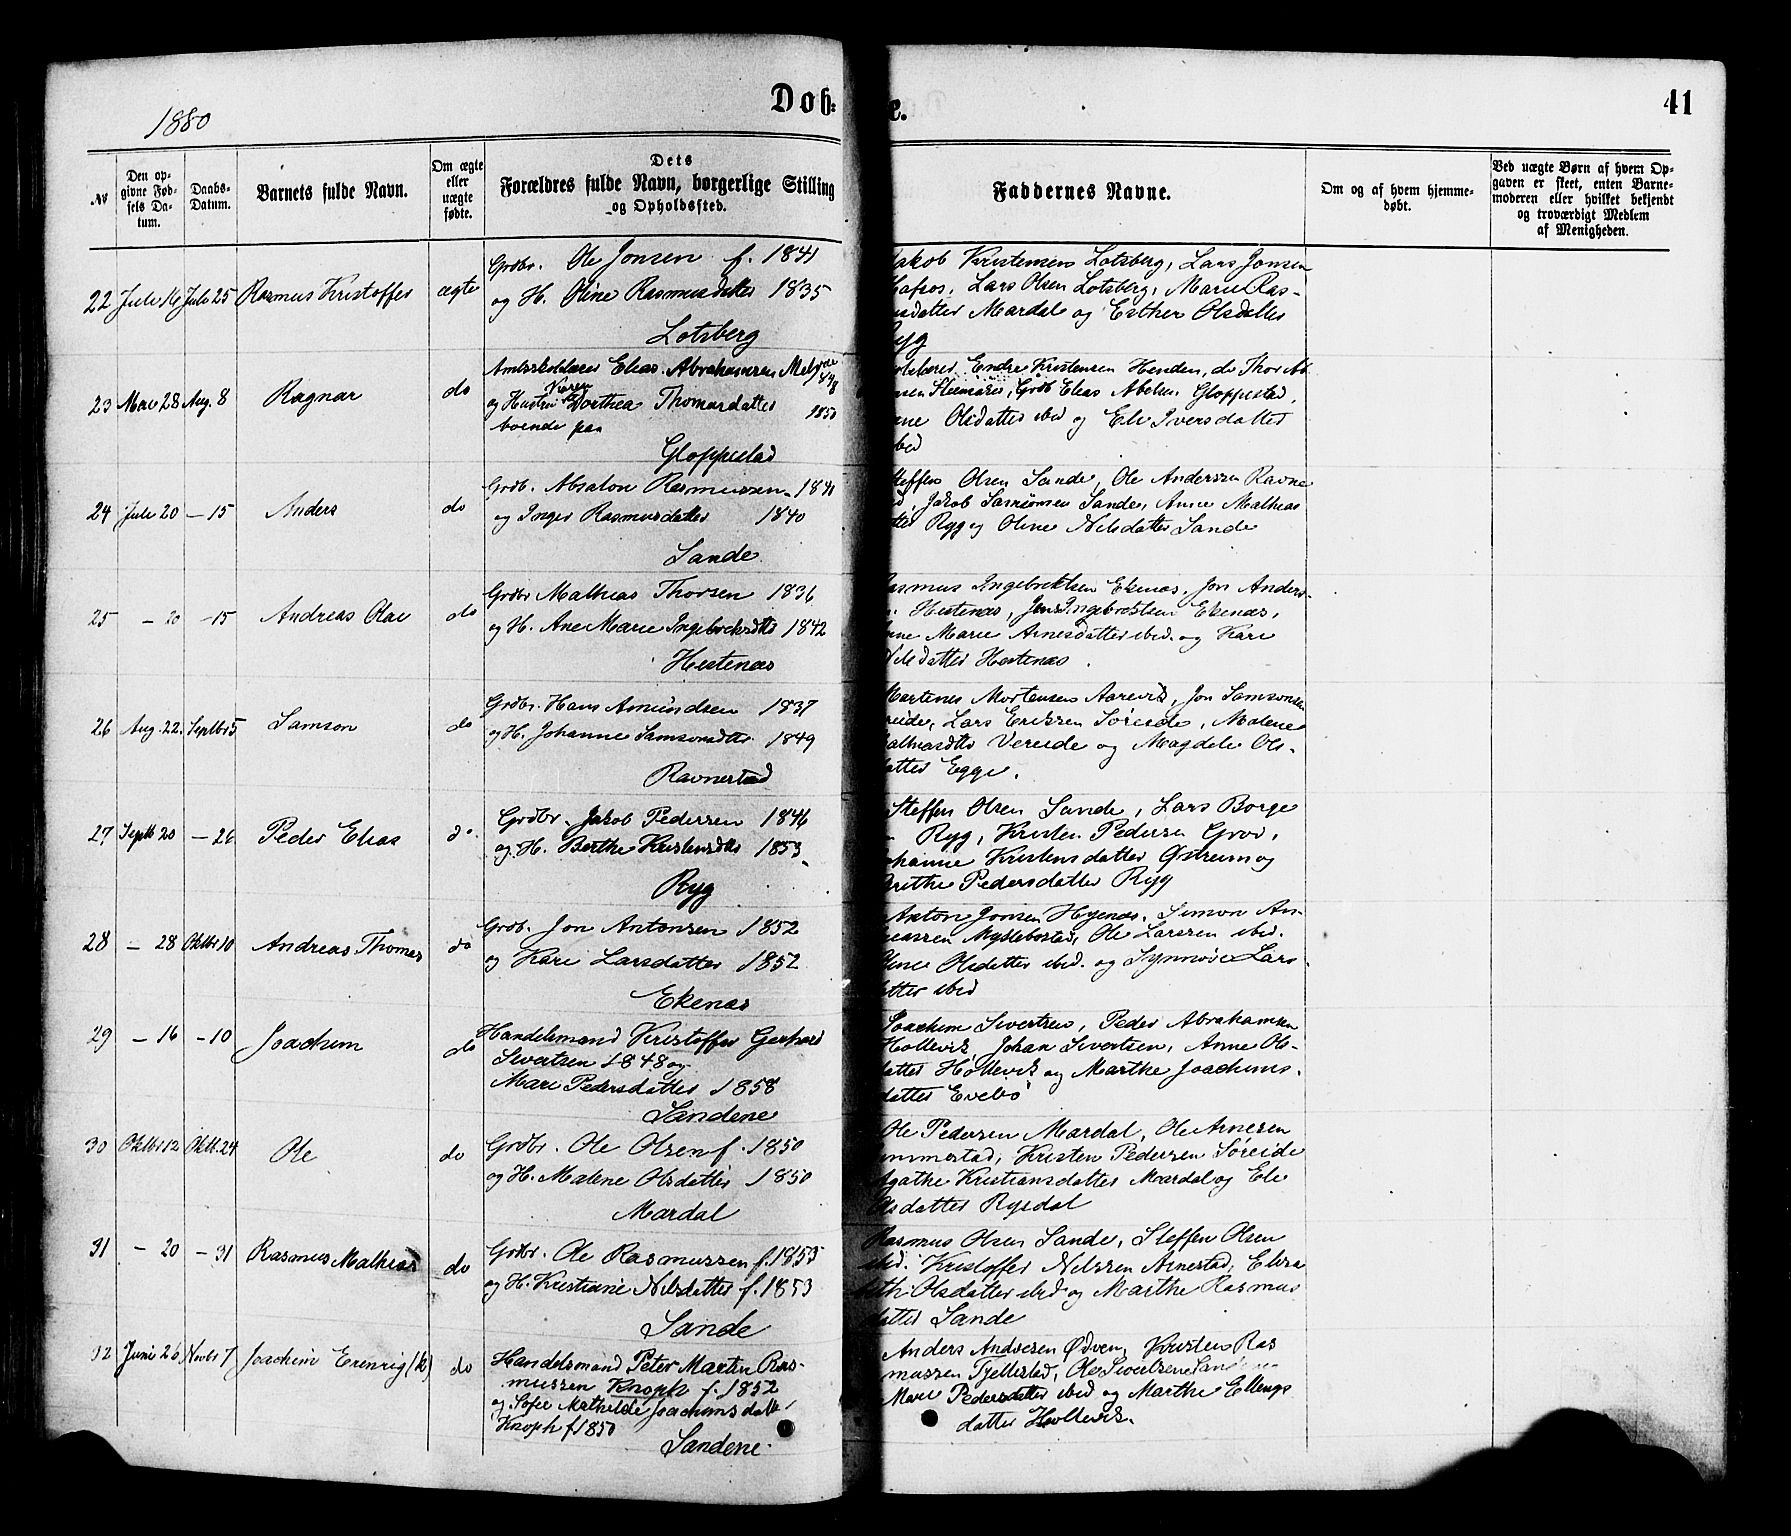 1880
Døbte.
41
No
Den opgivne Fødsels Datum.
Daabs-Datum.
Barnets fulde Navn.
Om ægte eller uægte fødte.
Dets Forældres fulde Navn, borgerlige Stilling og Opholdssted.
Faddernes Navne.
Om og af hvem hjemmedøbt.
Ved uægte Børn af hvem Opgaven er skeet, enten Barnemoderen eller hvilket bekjendt og troværdigt Medlem af Menigheden.
22 Juli 16 Juli 25 Rasmus Kristoffer ægte
Grdbr. Ole Jonsen f. 1841
og H. Oline Rasmusdatter 1835
Lotsberg
Jakob Kristensen Lotsberg, Lars Jonsen
Lars Olsen Lotsberg, Marie Ras-
usdatter Mardal og Esther Olsdatter
Ryg
23 Mai 28 Aug. 8 Ragnar do
Amtsskolelærer Elias Abrahamsen
og Hustru Dorthea Thomasdatter 1850
boende paa
Gloppestad
Endre Kristensen Henden, do Thor
Grdb Elias Abelsen Gloppestad,
ne Olsdatter ibid og Eli Iversdatter
ibid
24 Juli 20 — 15 Anders do
Grdb. Absalon Rasmussen 1840
og Inger Rasmusdatter 1840
Sande
Steffen Olsen Sande, Ole Anderssen Ravne
Jakob Sande, Anne Mathias
tter Ryg og Oline Nilsdatter Sande
25 — 20 — 15 Andreas Olai do
Grdbr Mathias Thorsen 1836
og H. Ane Marie Ingebrektsdtr 1842
Hestenæs
Rasmus Ingebrektsen Ekenæs, Jon Anders-
n Hestenæs, Jens Ingebrektsen Ekenæs,
Anne Marie Arnesdatter ibid. og Kari
Nilsdatter Hestenæs.
26 Aug. 22. Septbr 5 Samson do
Grdbr. Hans Amundsen 1837
og H. Johanne Samsonsdtr 1849
Ravnestad
Martines Mortensen Aarevik, Jon Samsonsen
reide, Lars Eriksen Søreide, Malene
athiasdtr Vereide og Magdeli Ols-
datter Egge.
27 Septb 20 — 26 Peder Elias do.
Grdbr. Jakob Pedersen 1846
og H. Berthe Kristensdtr 1853
Ryg
Steffen Olsen Sande, Lars Borge
n Ryg, Kristen Pedersen Grov,
ohanne Kristensdatter Østreim og
Brithe Pedersdatter Ryg
28 — 28 Oktbr 10 Andreas Thomas do
Grdb. Jon Antonsen 1852
og Kari Larsdatter 1852
Ekenæs
Anton Jonsen Hyenæs, Simon An-
reassen Myklebostad, Ole Larssen ibid.
Oline Olsdatter ibid. og Synnøve Lars-
datter ibid
29 — 16 — 10 Joachim do
Handelsmand Kristoffer Gerhard
Sivertsen 1848 og
Mari Pedersdatter 1858
Sandene
Joachim Sivertsen, Peder Abrahamsen
Hollevik, Johan Sivertsen, Anne Ols-
datter Hollevik og Marthe Joachims-
datter Evebø
30 Oktbr 12 Oktb. 24 Ole do
Grdbr. Ole Olsen f. 1850
og H. Malene Olsdatter 1850
Mardal
Ole Pedersen Mardal, Ole Arnesen
mmestad, Kristen Pedersen Søreide
Agathe Kristiansdatter Mardal og Eli
Olsdatter Rysdal
31 — 20 — 31 Rasmus Mathias do
Grdbr. Ole Rasmussen f. 1853
og H. Kristiane Nilsdatter f. 1853
Sande
Rasmus Olsen Sande, Steffen Olsen
ibid. Kristoffer Nilssen Arnestad, Elisa
beth Olsdatter ibid og Marthe Rasmus
datter Sande
32 Juni 26 Novbr 7 Joachim (k) do
Handelsmand Peter Martin Ras-
mussen Knoph f. 1852
og Sofie Mathilde Joachimsdatter
Knoph f 1850
Sandene
Anders Andersen Ødven, Kristen Ras
mussen Fjellestad, Ole Sivertsen Sandene
Mari Pedersdatter ibid og Marthe Ellings
datter Hollevik.